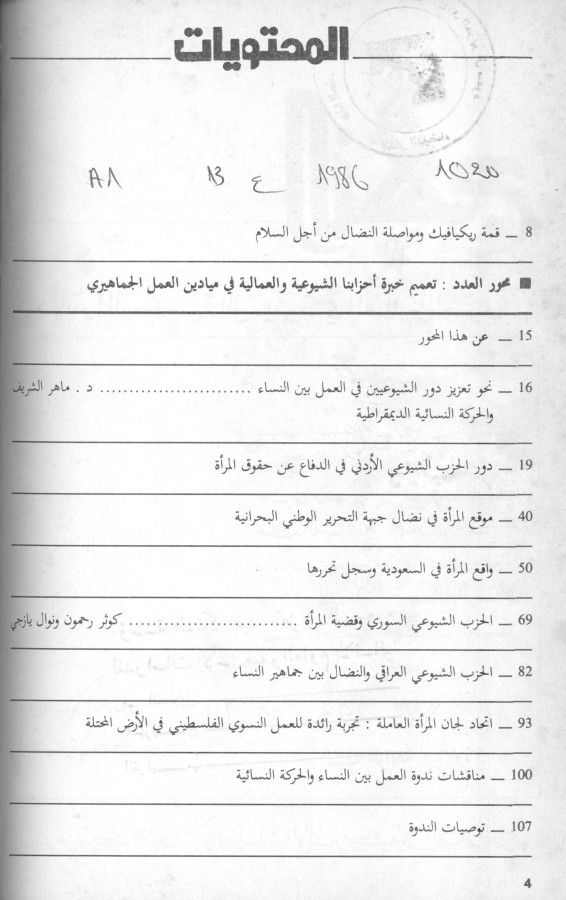 المحتويات
A1 13 ع 1986 1020
8 ـ قمة ريكيافيك ومواصلة النضال من أجل السلام
■ محور العدد : تعميم خبرة أحزابنا الشيوعية والعمالية في ميادين العمل الجماهيري
15 ـ عن هذا المحور
16 ـ نحو تعزيز دور الشيوعيين في العمل بين النساء .......................... د . ماهر الشريف
والحركة النسائية الديمقراطية
19 ـ دور الحزب الشيوعي الأردني في الدفاع عن حقوق المرأة
40 ـ موقع المرأة في نضال جبهة التحرير الوطني البحرانية
50 ـ واقع المرأة في السعودية وسجل تحررها
69 ـ الحزب الشيوعي السوري وقضية المرأة ............................. كوثر رحمون ونوال يازجي
82 ـ الحزب الشيوعي العراقي والنضال بين جماهير النساء
93 ـ اتحاد لجان المرأة العاملة : تجربة رائدة للعمل النسوي الفلسطيني في الأرض المحتلة
100 ـ مناقشات ندوة العمل بين النساء والحركة النسائية
107 ـ توصيات الندوة
4